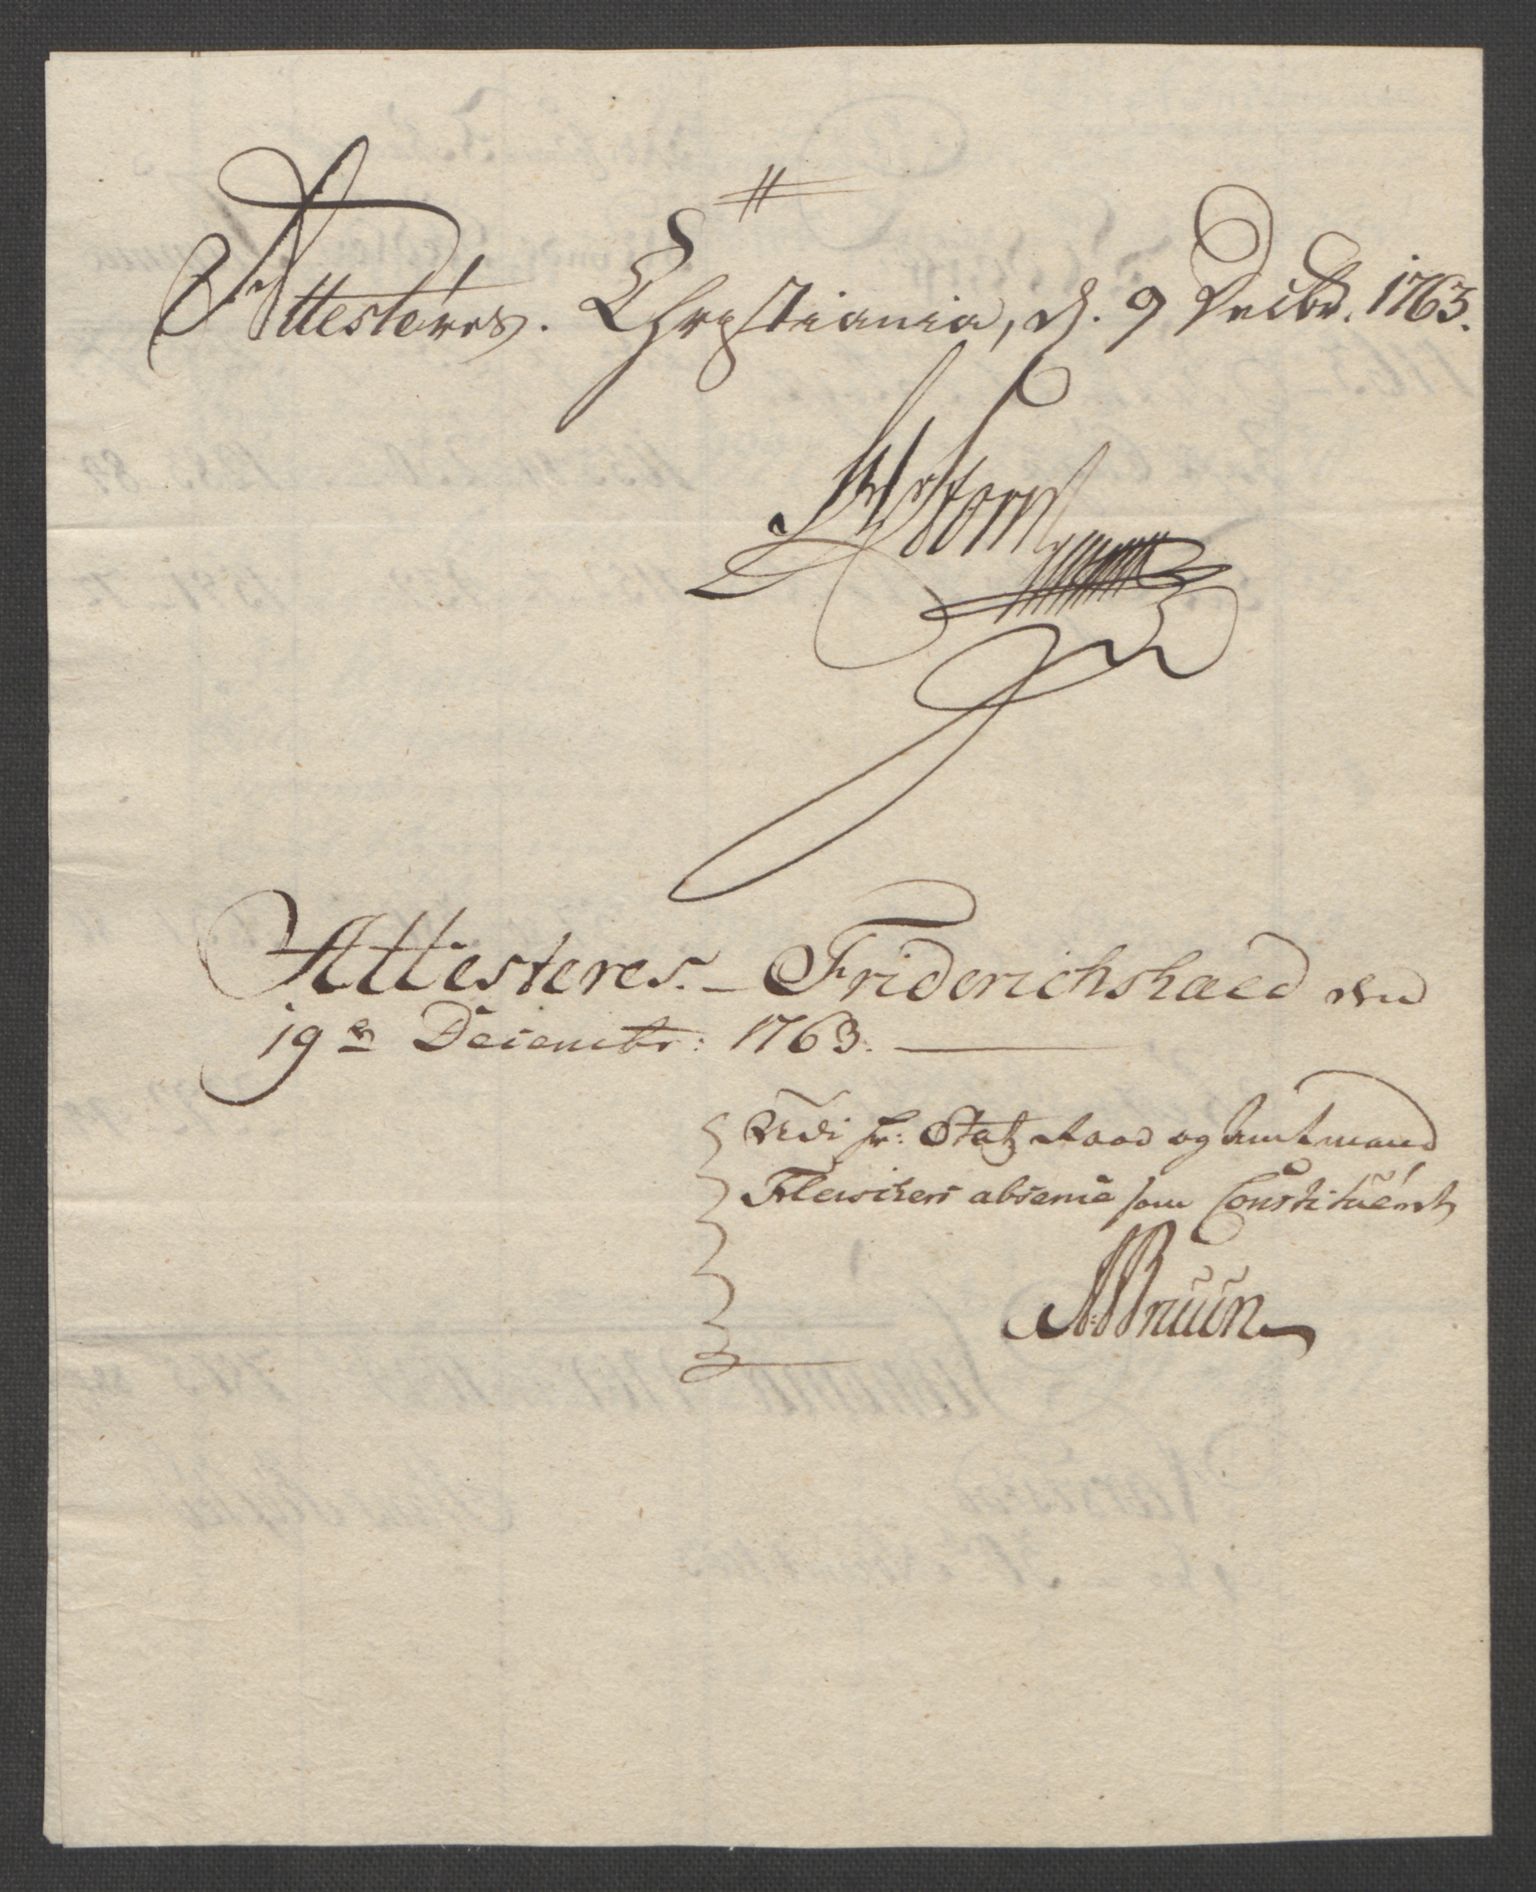 Attesteres. Christiania, d. 9 Decbr. 1763.
Storm
Attesteres. – Friderichshald den
19de Decembr: 1763.
Udi hr: Etatz Raad og Amtmand
absence som Constitueret
Bruun